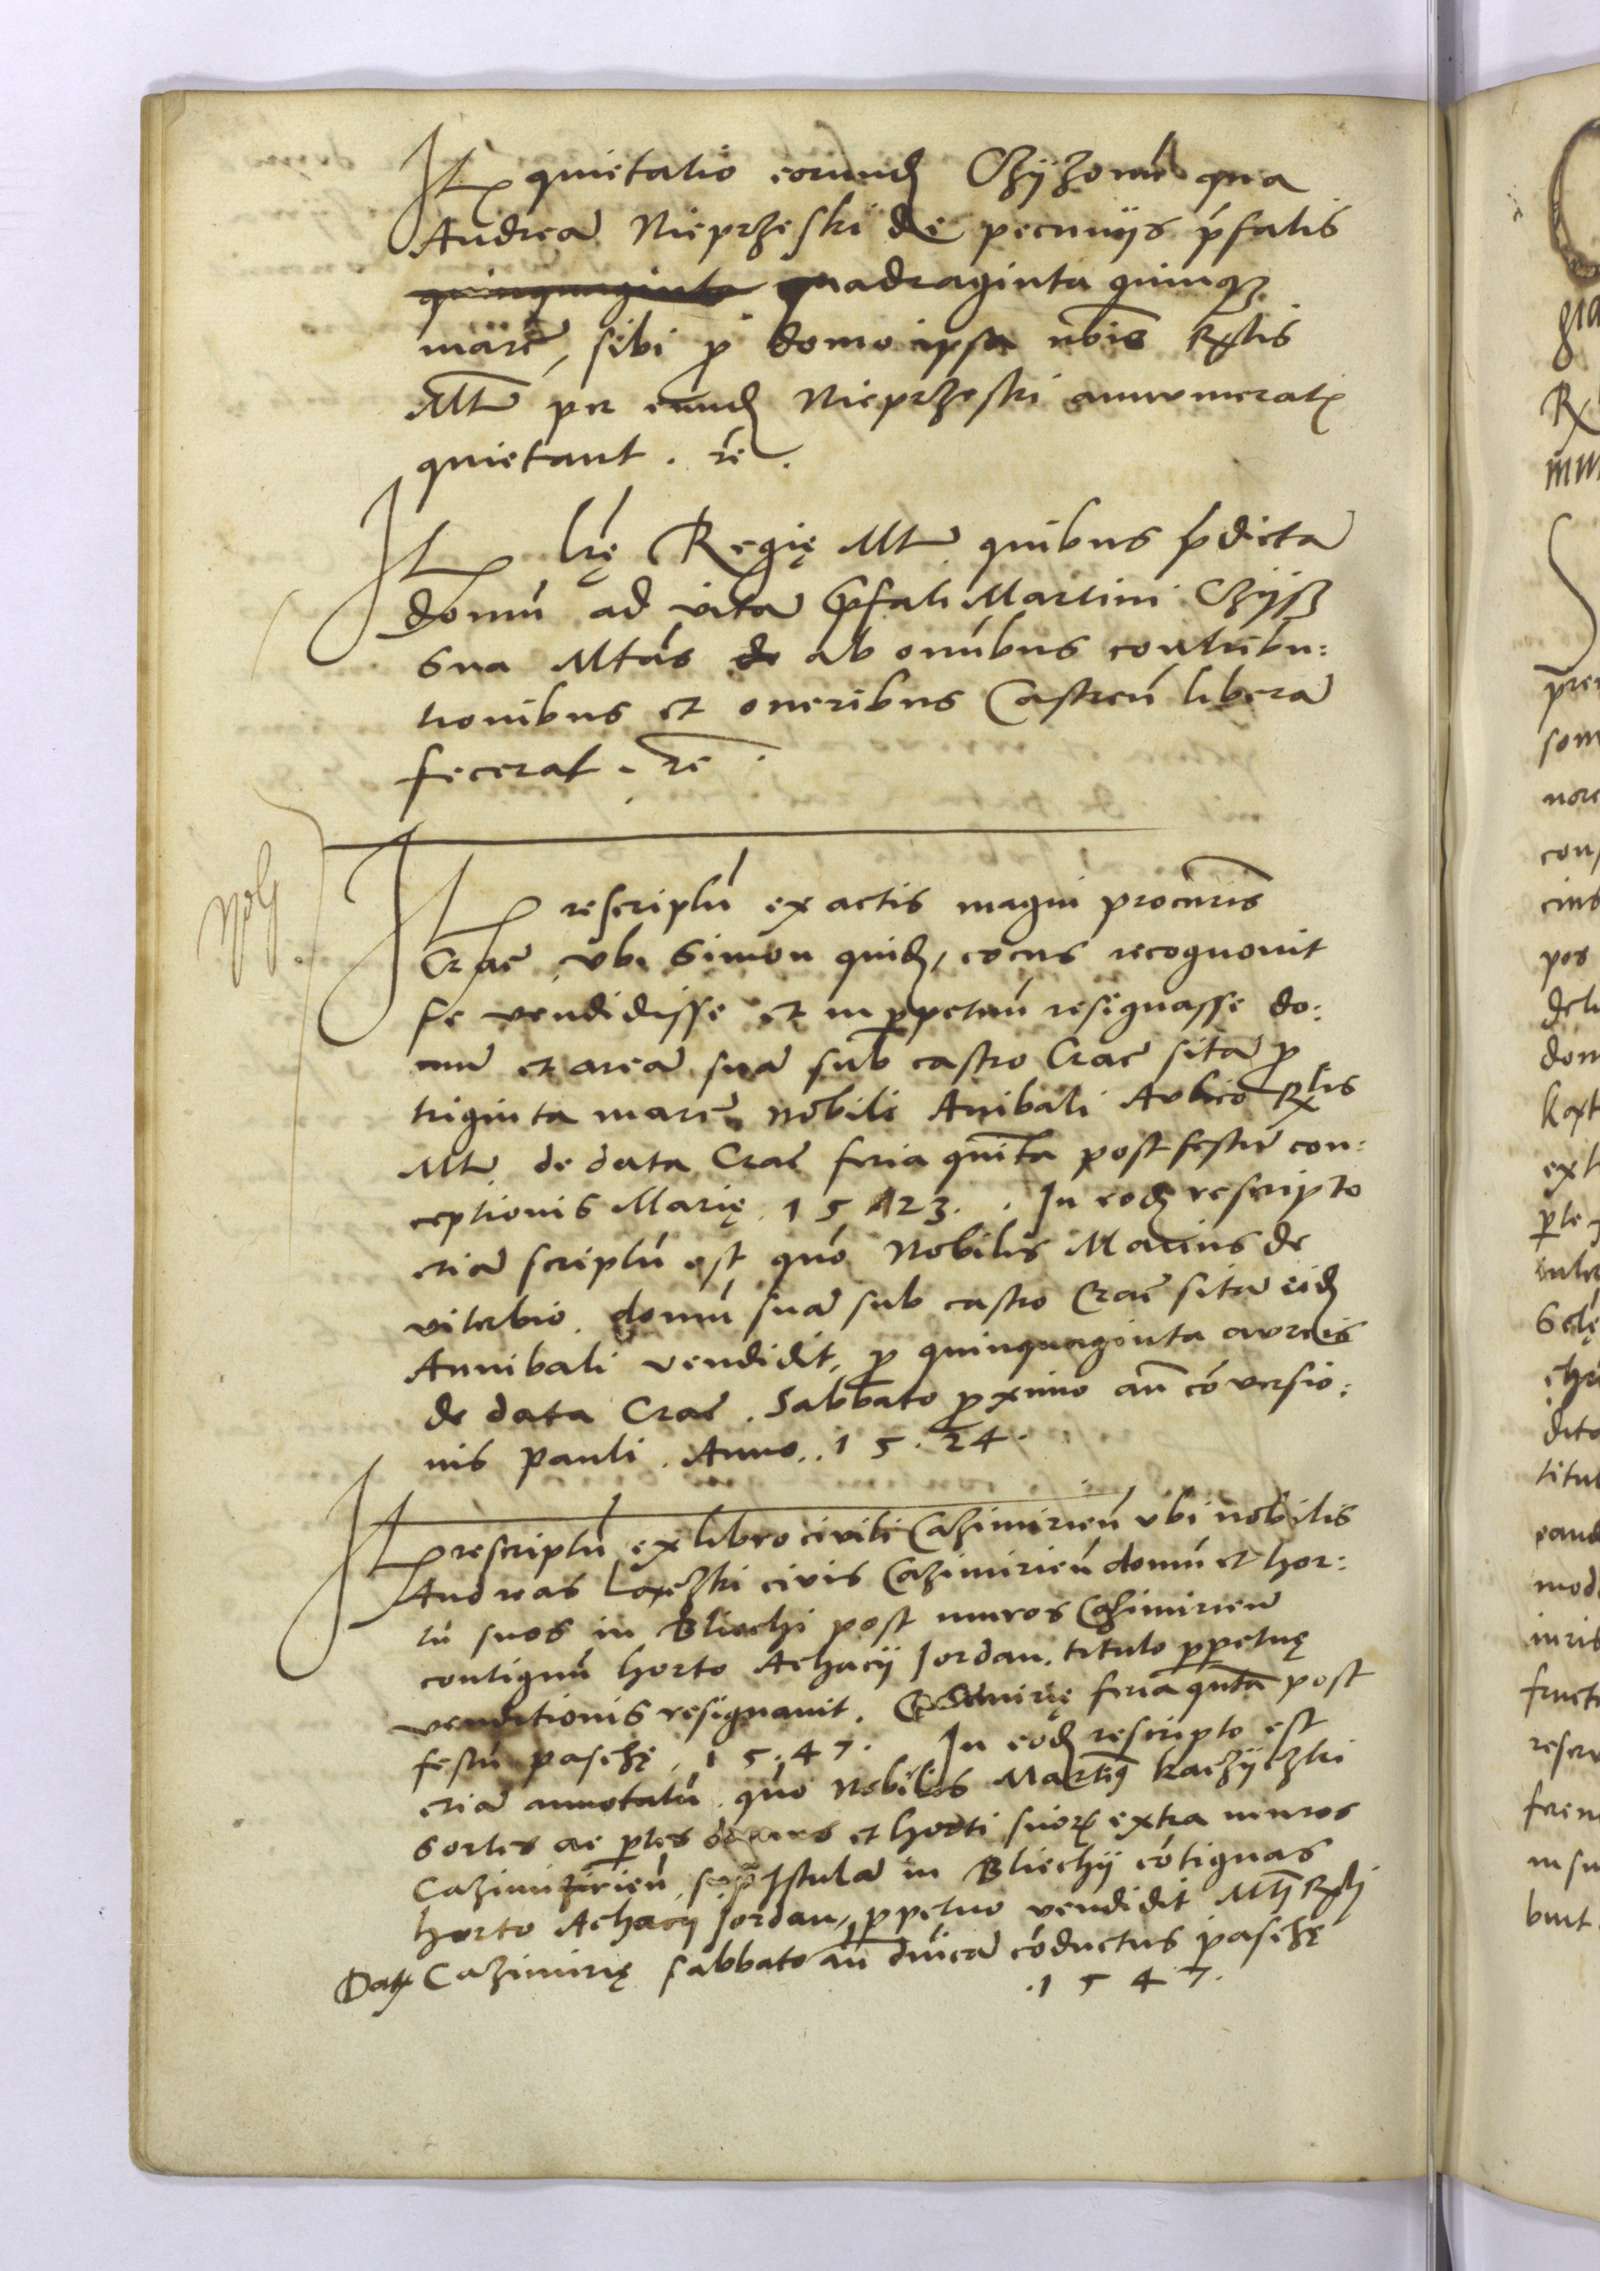 It quietatio eorund Czyżonū qua
Andreā Nieprzeski de pecunijs p̄fatis
quinquaginta quadraginta quinqȝ
marc̄, sibi p domo ipsa nōie R̄ gtis
Mtt̄ per eund Nieprzeski annumerat
quietant. rc̄.
It lr̄ę Regię Mtt̄ quibus p̄dictā
domū ad vitā p̄fati Martini Czijȝ
Sua Mtās de ab oīnibus contribu:
tionibus et oneribus Castren̄ liberā
fecerat. rc̄.
It rescriptū ex actis magni procur̄is
Crac̄ vbi Simon quid, cocus recognouit
se vendidisse et in ppetuū resignasse do:
mū et areā suā sub castro Crac̄ sitā p
triginta marc̄ Nobili Anibali Aulico R̄ tis
Mtt̄ de data Crac̄ feria quīta post festū con:
ceptionis Marię. 1523. In eod rescripto
etiā scriptū est quō Nobilis Marius de
viterbio domū suā sub castro Crac̄ sitā eid
Annibali vendidit, p quinquaginta avreis
de data Crac̄. Sabbato pximo an̄ cōversio:
nis pauli. Anno. 15.24.
It rescriptū ex libro civili Cazimirien̄ vbi nobilis
Andreas civis Cazimirien̄ domū et hor:
tū suos in Bliechi post muros Cazimirien̄
contiguū horto Achacij Jordan. titulo ppetuę
venditionis resignauit. Cazimirię feria qnta post
festū paschę. 15.47. In eod rescripto est
etiā annotatū. quō Nobilis Martin9 Kaczijczki
sortes ac ptes domus et horti suor extra muros
Cazimirien̄ supra Istulā in Bliechij cōtiguas
horto Achacij Jordan, ppetuo vendidit Mti R̄ gij
Dat Cazimirię sabbato an̄ dnīcā cōductus paschę
.1547.